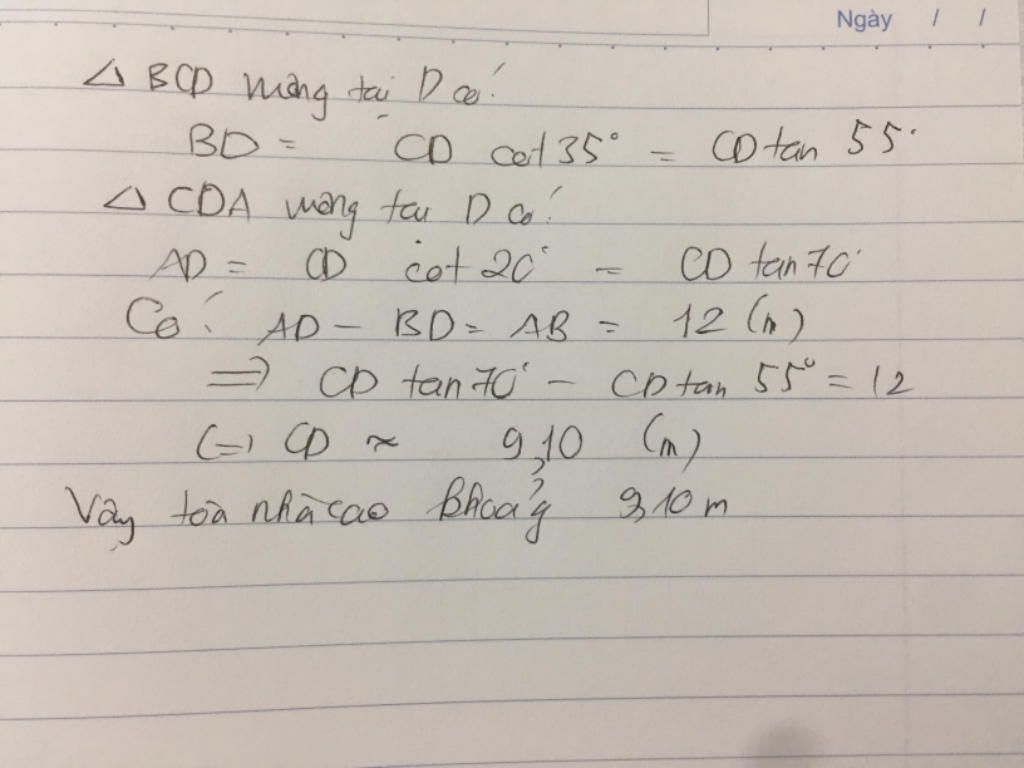 Ngày / /
Δ BCD vuông tại D có:
BD = CD cot 35° = CD tan 55°
Δ CDA vuông tại D có:
AD = CD cot 20° = CD tan 70°
Có: AD - BD = AB = 12 (m)
=> CD tan 70° - CD tan 55° = 12
(=) CD ≈ 9,10 (m)
Vậy tòa nhà cao khoảng 9,10 m